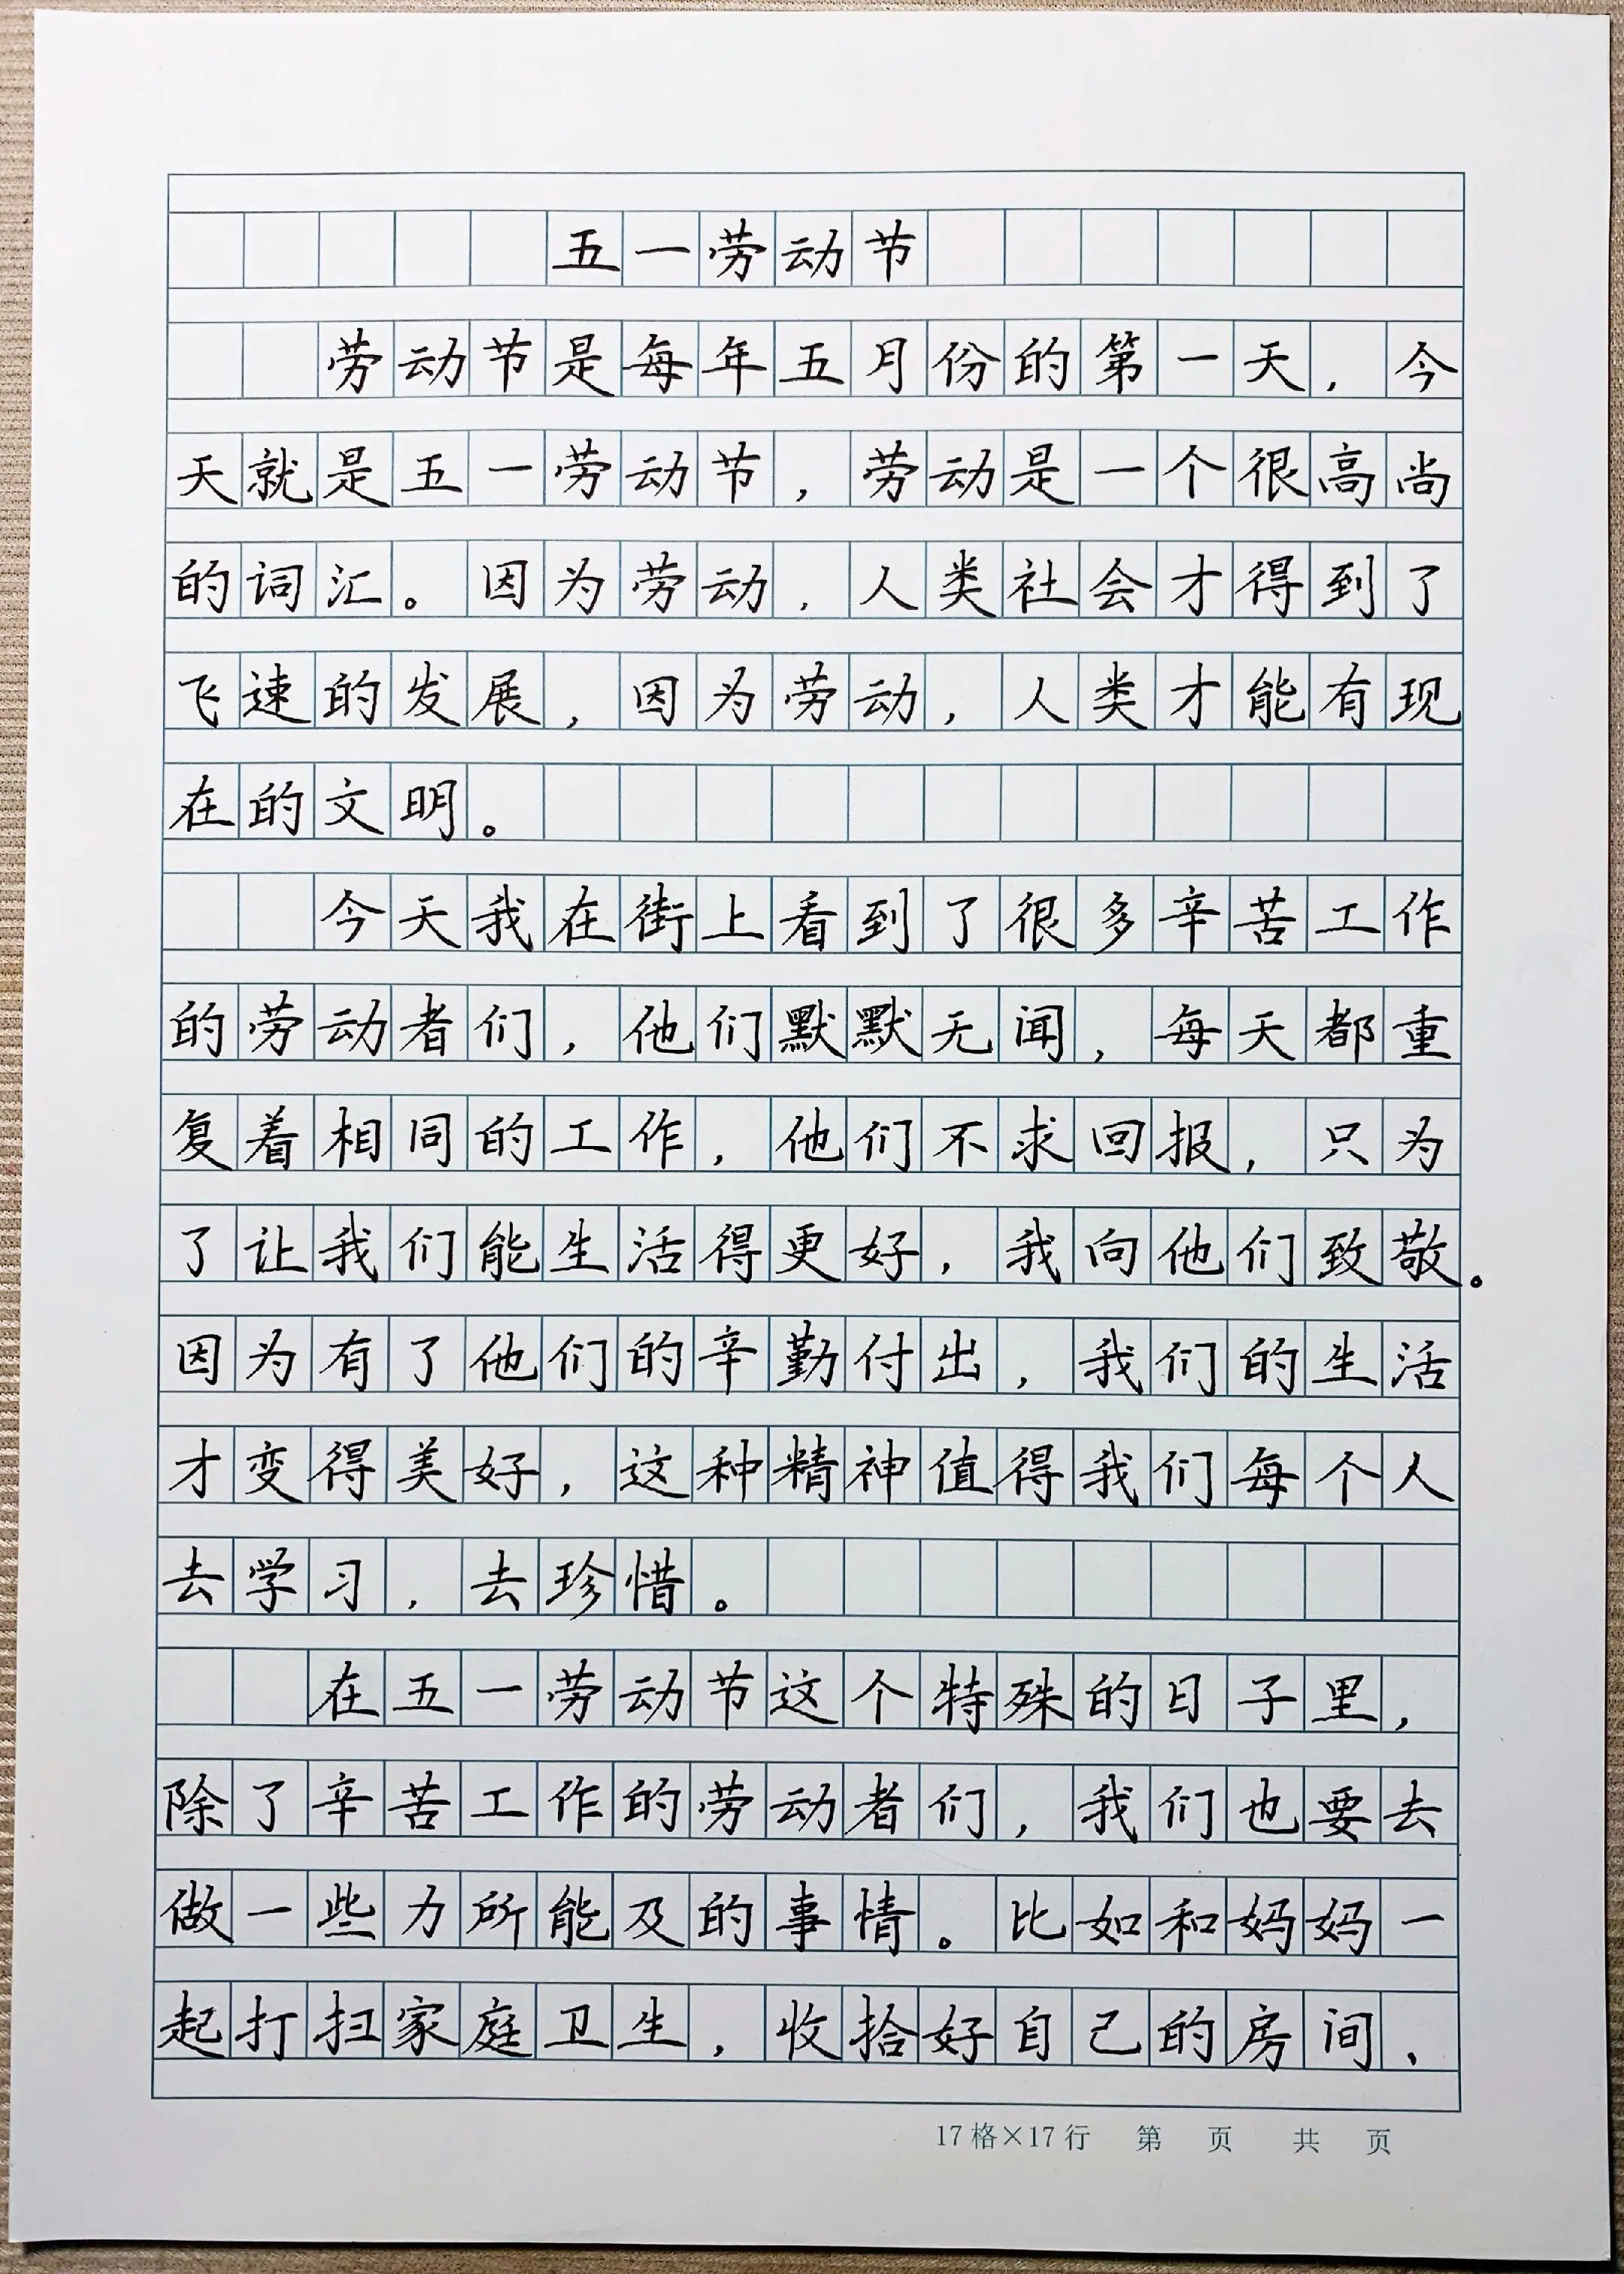 五一劳动节
劳动节是每年五月份的第一天，今
天就是五一劳动节，劳动是一个很高尚
的词汇。因为劳动，人类社会才得到了
飞速的发展，因为劳动，人类才能有现
在的文明。
今天我在街上看到了很多辛苦工作
的劳动者们，他们默默无闻，每天都重
复着相同的工作，他们不求回报，只为
了让我们能生活得更好，我向他们致敬。
因为有了他们的辛勤付出，我们的生活
才变得美好，这种精神值得我们每个人
去学习，去珍惜。
在五一劳动节这个特殊的日子里，
除了辛苦工作的劳动者们，我们也要去
做一些力所能及的事情。比如和妈妈一
起打扫家庭卫生，收拾好自己的房间、
17格×17行 第 页 共 页